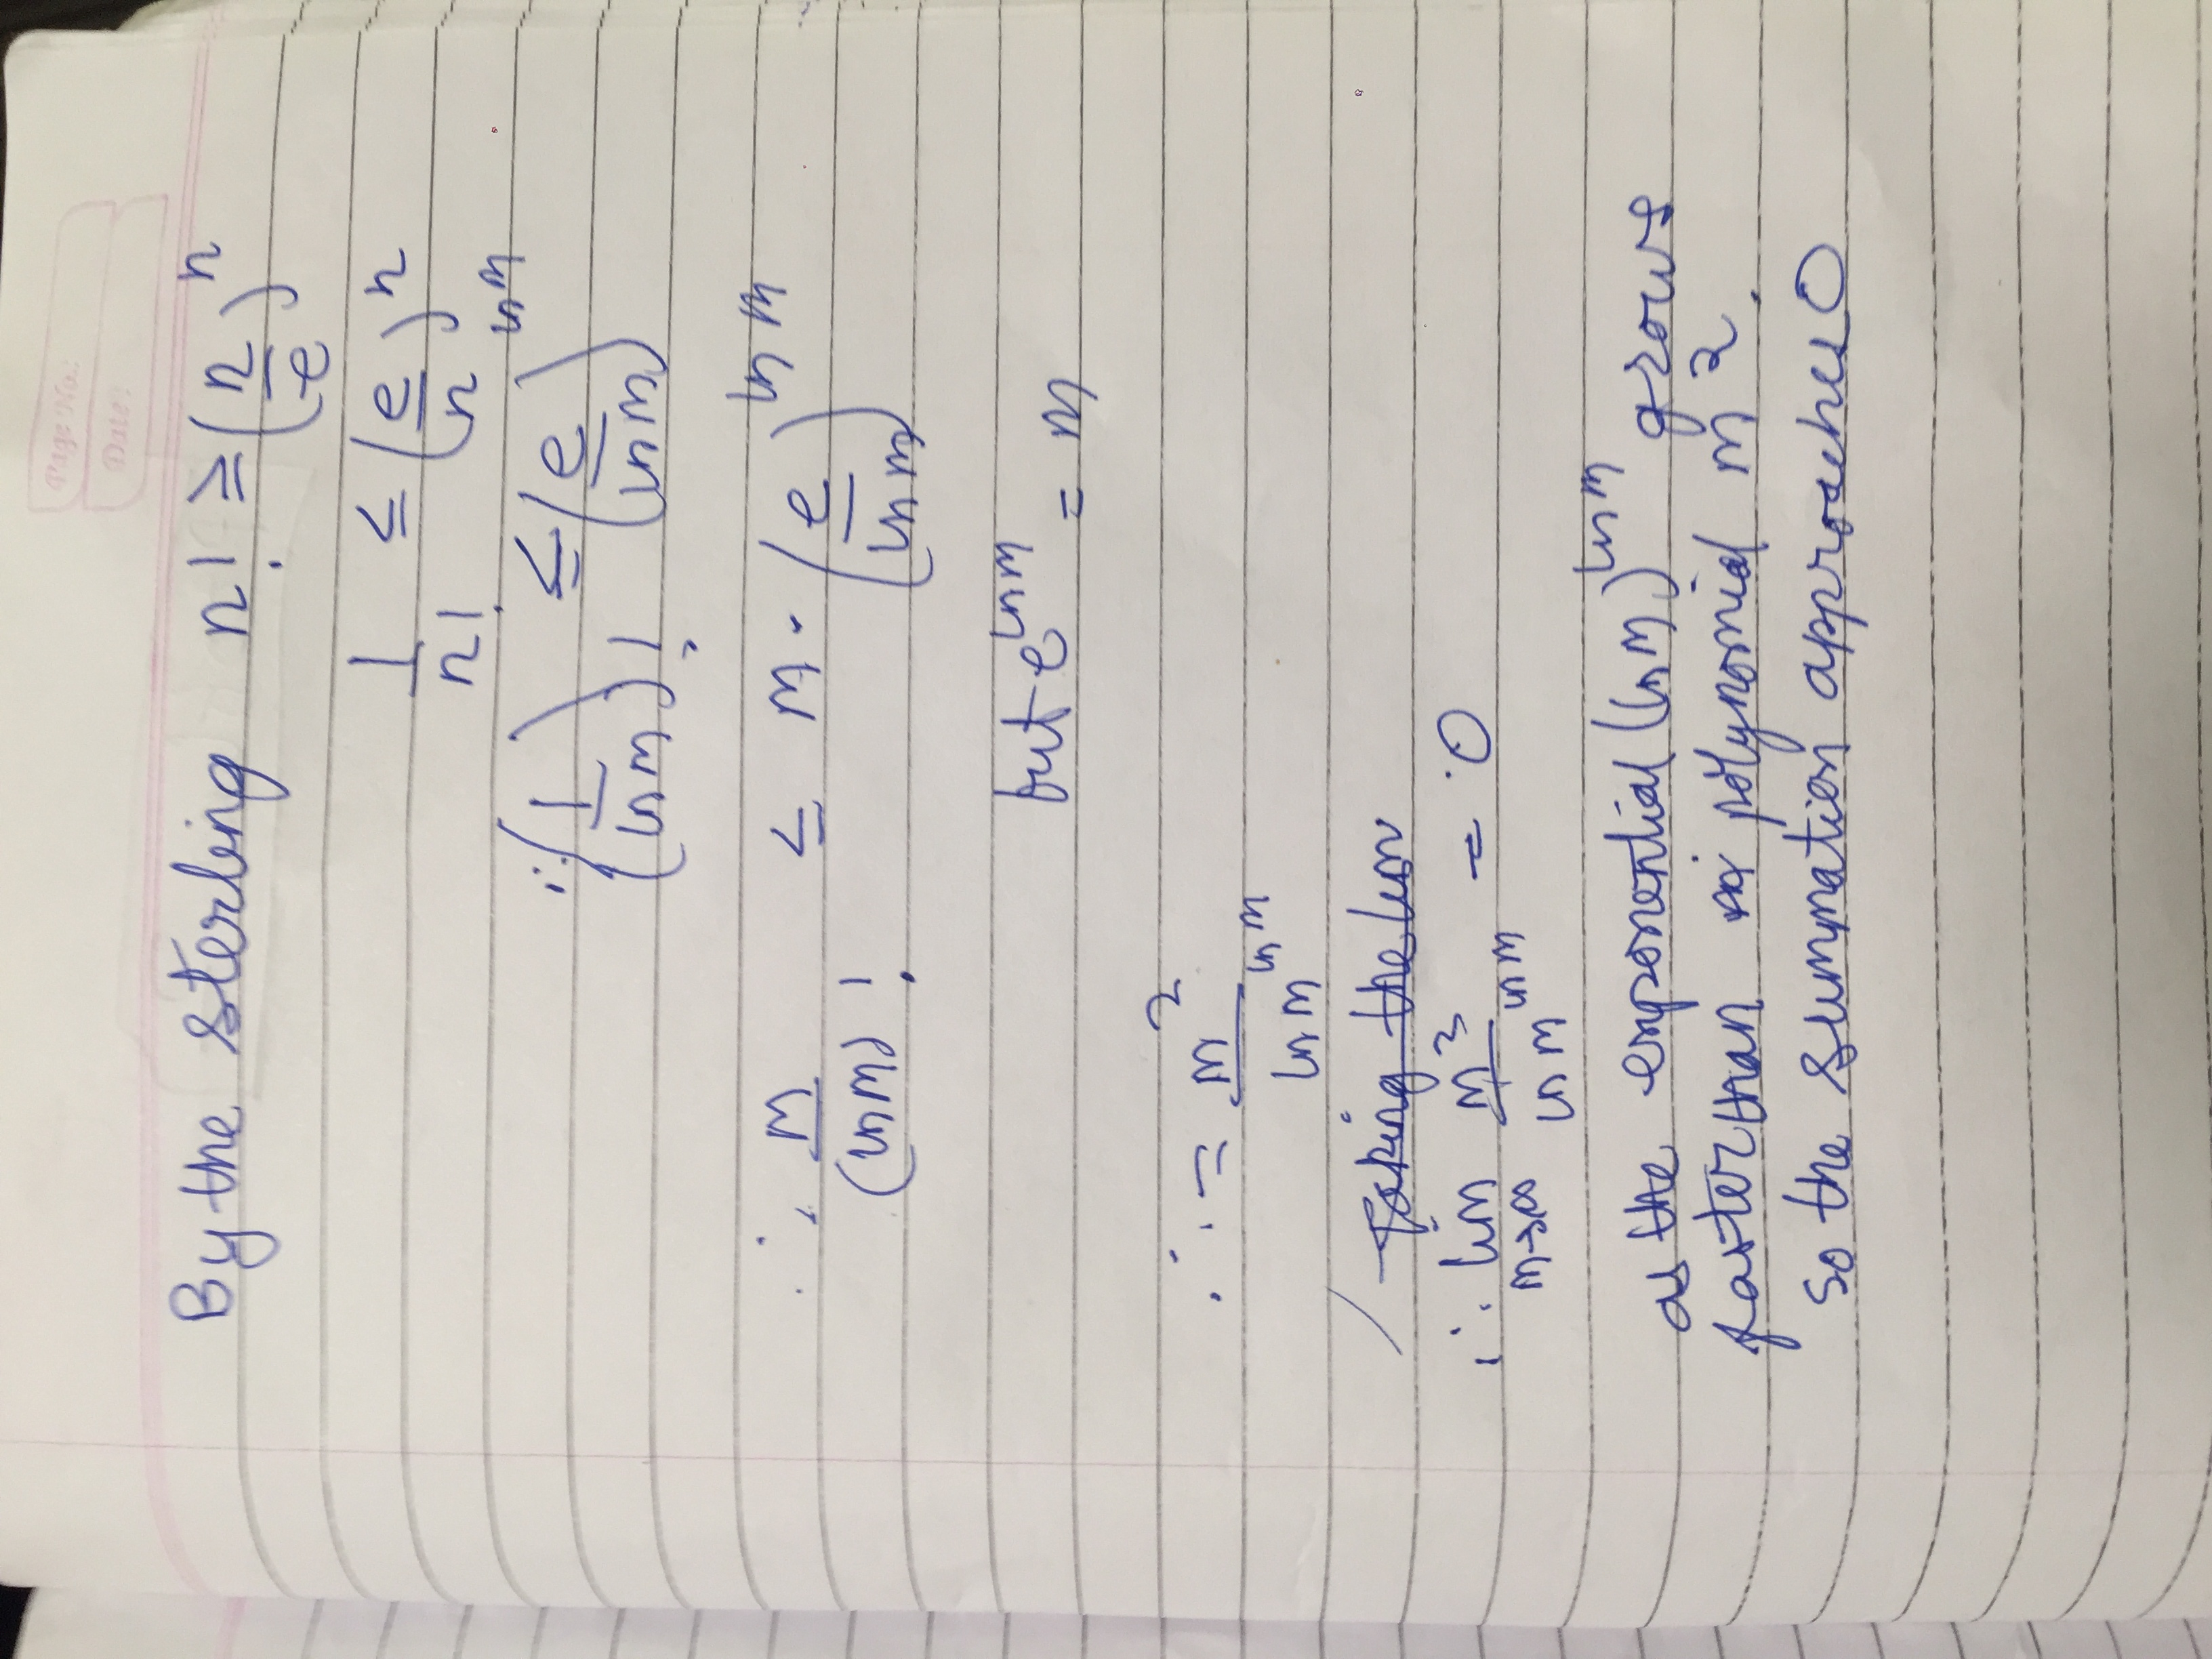 Page No.:
Date:
By the sterling n! ≥ (n/e)^n
1/n! ≤ (e/n)^n
∴ (1/ln m)! ≤ (e/ln m)^ln m
∴ m/(ln m)! ≤ m · (e/ln m)^ln m
but e^ln m = m
∴ = m^2/ln m^ln m
Taking the lim
∴ lim m→∞ m^3/ln m^ln m = 0
as the exponential (ln m)^ln m grows
faster than polynomial m^2.
So the summation approaches 0